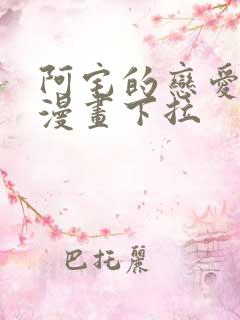 阿宅的戀愛
漫畫下拉
巴托麗